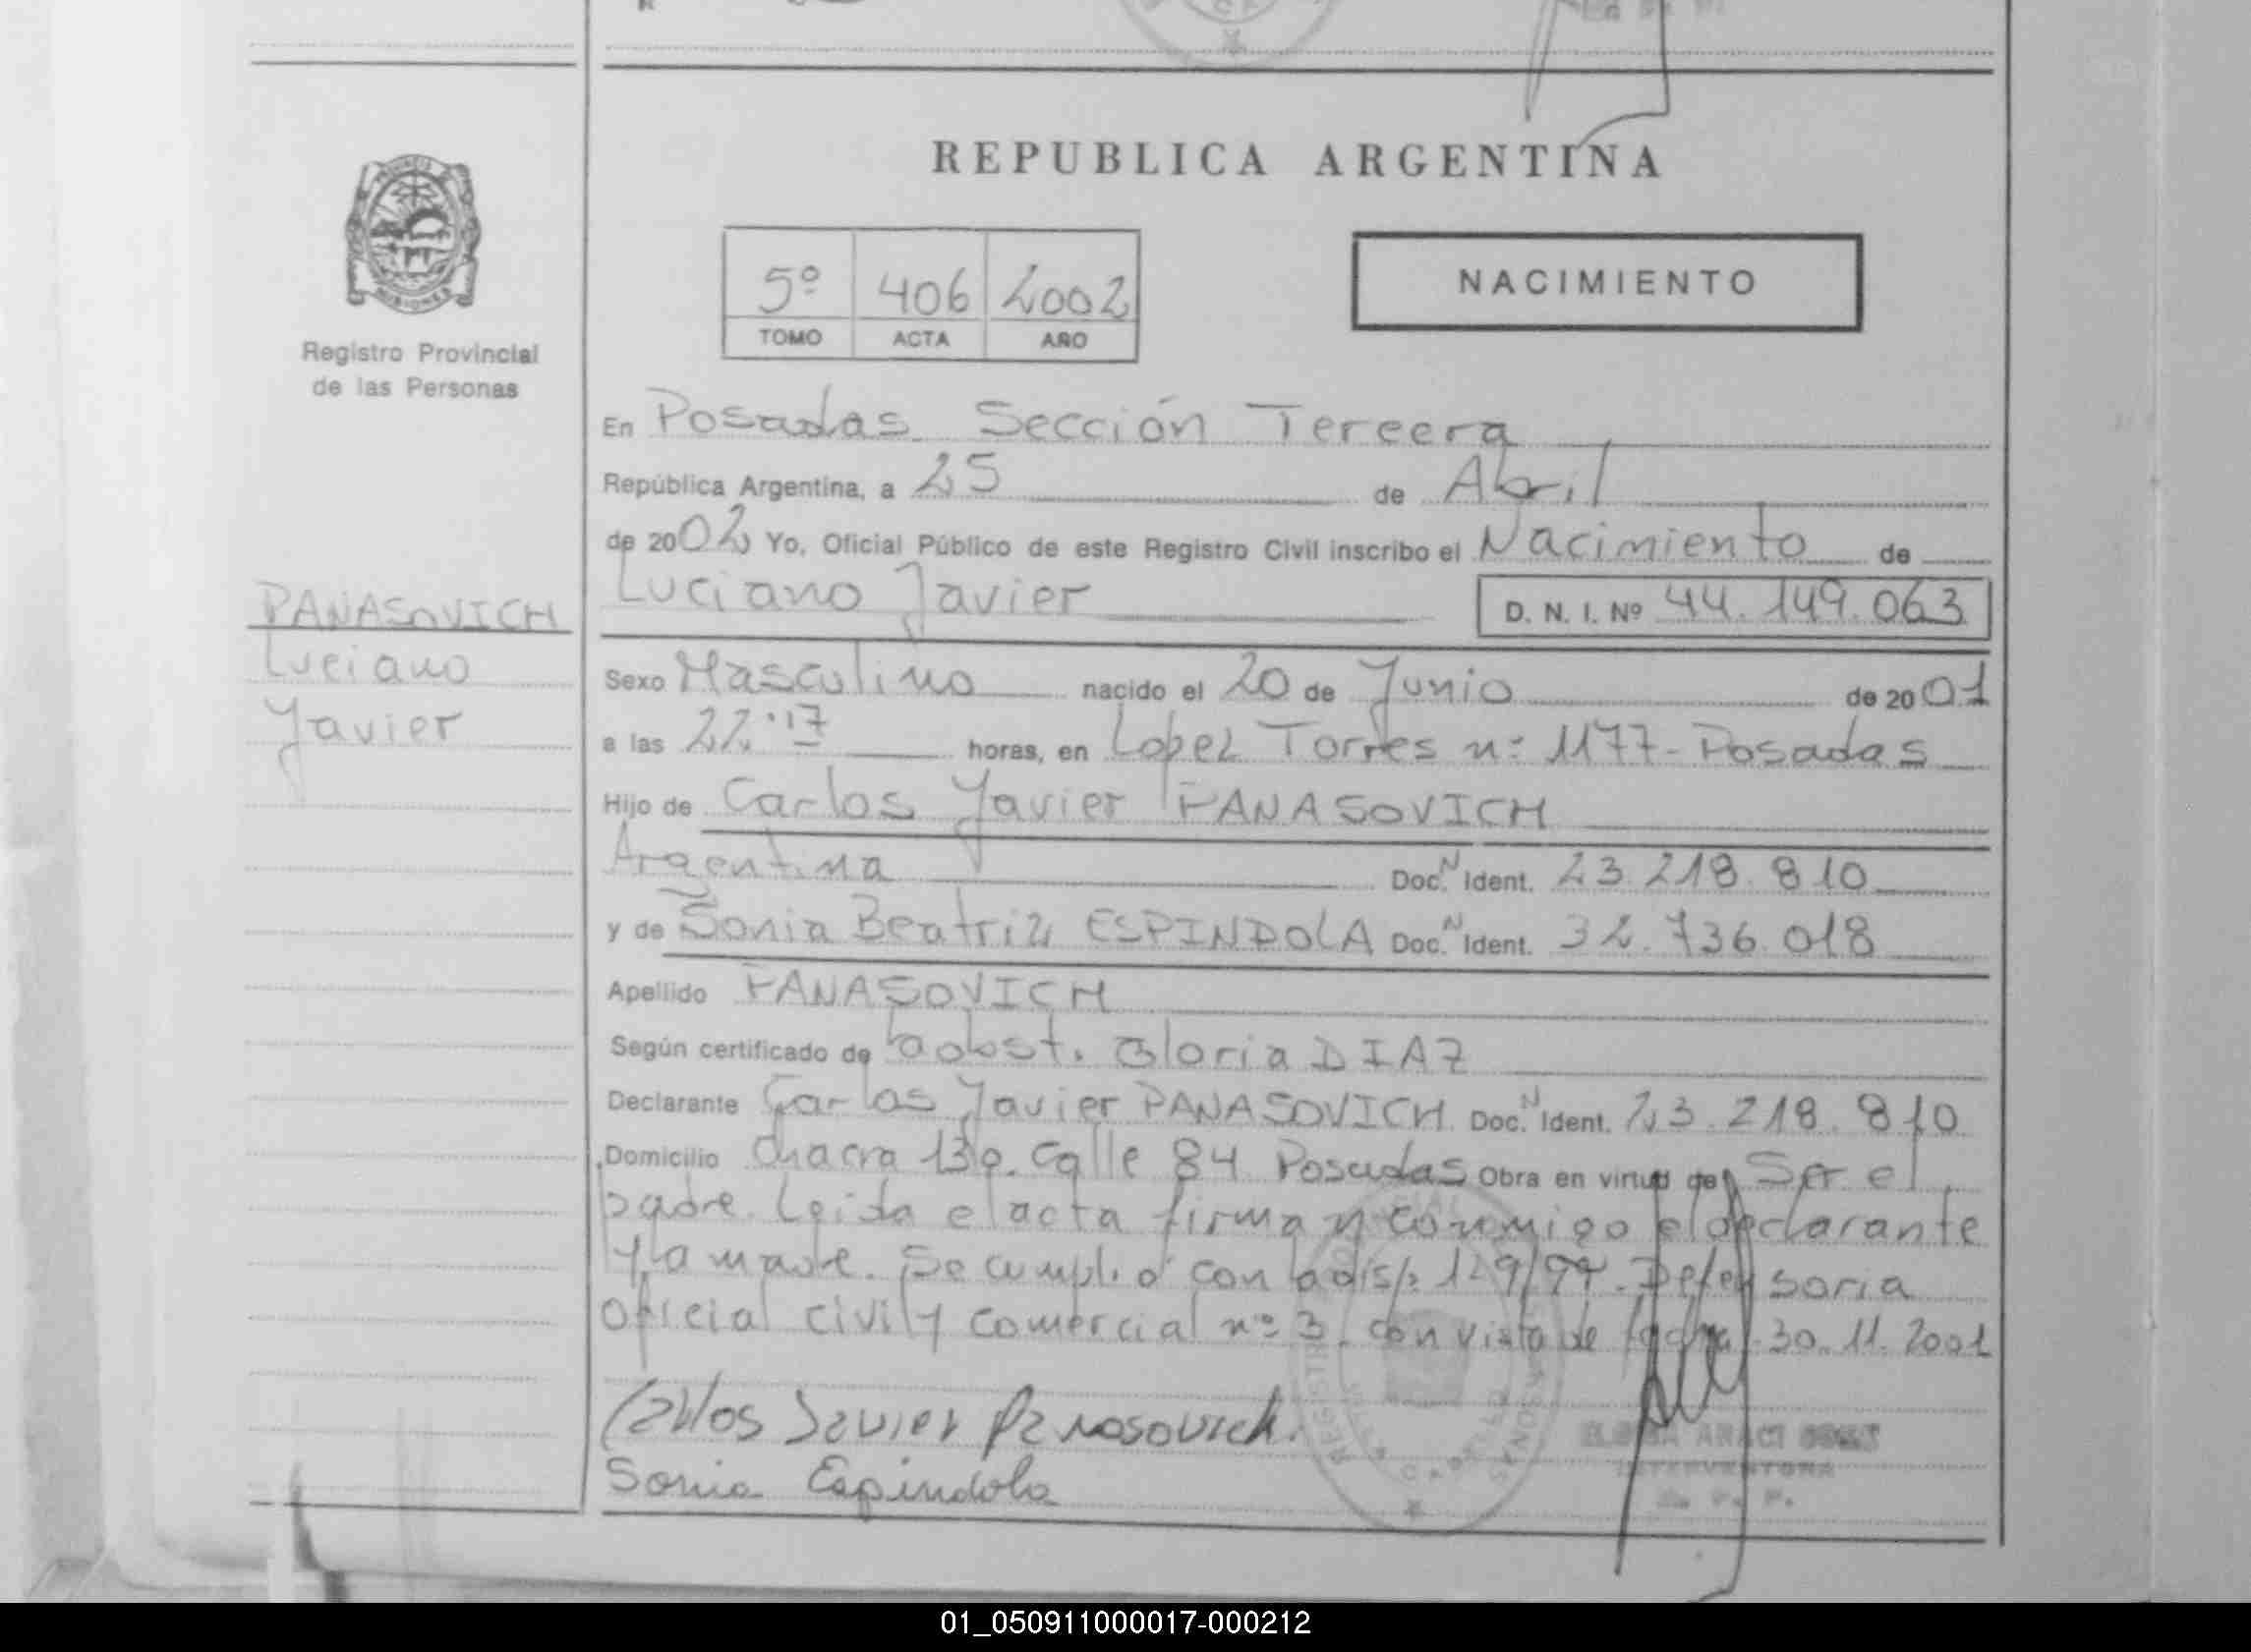 REPUBLICA ARGENTINA
5º 406 2002
TOMO ACTA AÑO
NACIMIENTO
MISIONES
Registro Provincial
de las Personas
PANASOVICH
Luciano
Javier
En Posadas Sección Tercera
República Argentina, a 25 de Abril
de 2002 Yo, Oficial Público de este Registro Civil inscribo el Nacimiento de
Luciano Javier D. N. I. Nº 44.149.063
Sexo Masculino nacido el 20 de Junio de 2001
a las 22:17 horas, en Lopez Torres nº 1177-Posadas
Hijo de Carlos Javier PANASOVICH
Argentina Doc. N Ident. 23.218.810
y de Sonia Beatriz ESPINDOLA Doc. N Ident. 32.736.018
Apellido PANASOVICH
Según certificado de la obst. Gloria DIAZ
Declarante Carlos Javier PANASOVICH Doc. N Ident. 23.218.810
Domicilio Chacra 139. Calle 84 Posadas Obra en virtud de Ser el
padre. Leida el acta firman conmigo el declarante
y la madre. Se cumplió con la disp. 129/97. Defensoria
Oficial civil y comercial nº 3. con vista de fecha 30.11.2001
Carlos Javier Panasovich.
Sonia Espindola
INTERVENTORA
R. P. P.
01_050911000017-000212